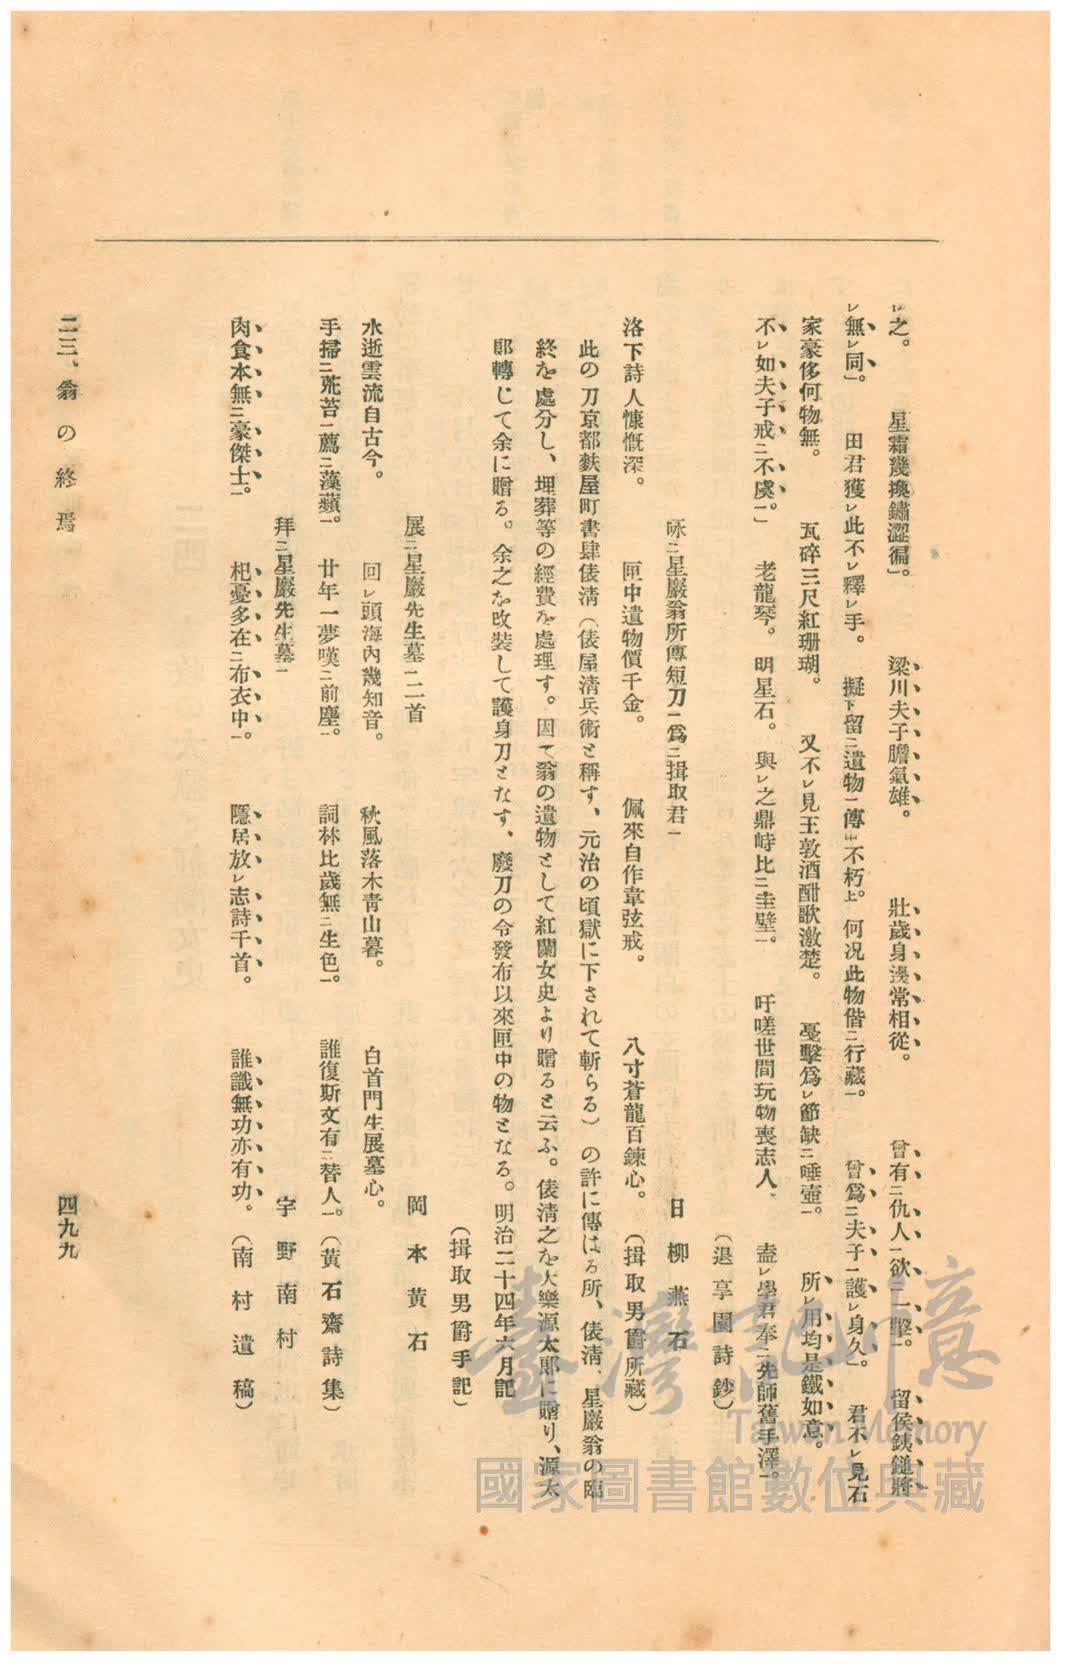 レ之。 星霜幾換鏽澀徧」。 梁川夫子膽氣雄。 壯歲身邊常相從。 曾有二仇人一欲二一擊一。 留侯銕鎚將
レ無レ同」。 田君獲レ此不レ釋レ手。 擬下留二遺物一傳中不朽上。何况此物偕二行藏一。 曾爲二夫子一護レ身久」。 君不レ見石
家豪侈何物無。 瓦碎三尺紅珊瑚。 又不レ見王敦酒酣歌激楚。 戞擊爲レ節缺二唾壺一。 所レ用均是鐵如意。
不レ如夫子戒二不虞一。」 老龍琴。 明星石。 與レ之鼎峙比二圭璧一。 吁嗟世間玩物喪志人、 盍レ學君奉二先師舊手澤一。
(退享園詩鈔)
咏二星巖翁所傳短刀一爲二揖取君一 日柳燕石
洛下詩人慷慨深。 匣中遺物價千金。 佩來自作韋弦戒。 八寸蒼龍百鍊心。 (揖取男爵所藏)
此の刀京都麩屋町書肆俵淸(俵屋淸兵術と稱す、元治の頃獄に下されて斬らる)の許に傳はる所、俵淸、星巖翁の臨
終を處分し、埋葬等の經費を處理す。因て翁の遺物として紅蘭女史より贈ると云ふ。俵淸之を大樂源太郎に贈り、源太
郎轉じて余に贈る。余之を改裝して護身刀となす、廢刀の令發布以來匣中の物となる。明治二十四年六月記
(揖取男爵手記)
展二星巖先生墓一二首 岡本黄石
水逝雲流自古今。 回レ頭海內幾知音。 秋風落木靑山暮。 白首門生展墓心。
手掃二荒苔一薦二藻蘋一。 廿年一夢嘆二前塵一。 詞林比歲無二生色一。 誰復斯文有二替人一。(黄石齋詩集)
拜二星巖先生墓一 宇野南村
肉食本無二豪傑士一。 杞憂多在二布衣中一。 隱居放レ志詩千首。 誰識無功亦有功。(南村遺稿)
二三、翁の終焉 四九九
臺灣記憶
Taiwan Memory
國家圖書館數位典藏